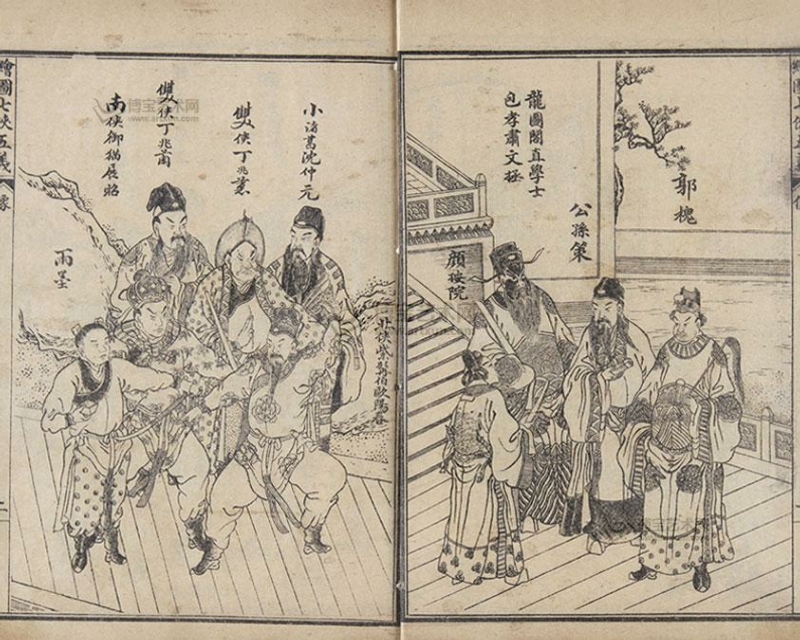 繪圖七俠五義
像
郭槐
公孫策
龍圖閣直學士
包孝肅文拯
顏按院
小諸葛沈仲元
雙俠丁兆蕙
雙俠丁兆蘭
南俠御猫展昭
北俠紫髯伯歐陽春
雨墨
繪圖七俠五義
像
二
博宝艺术网